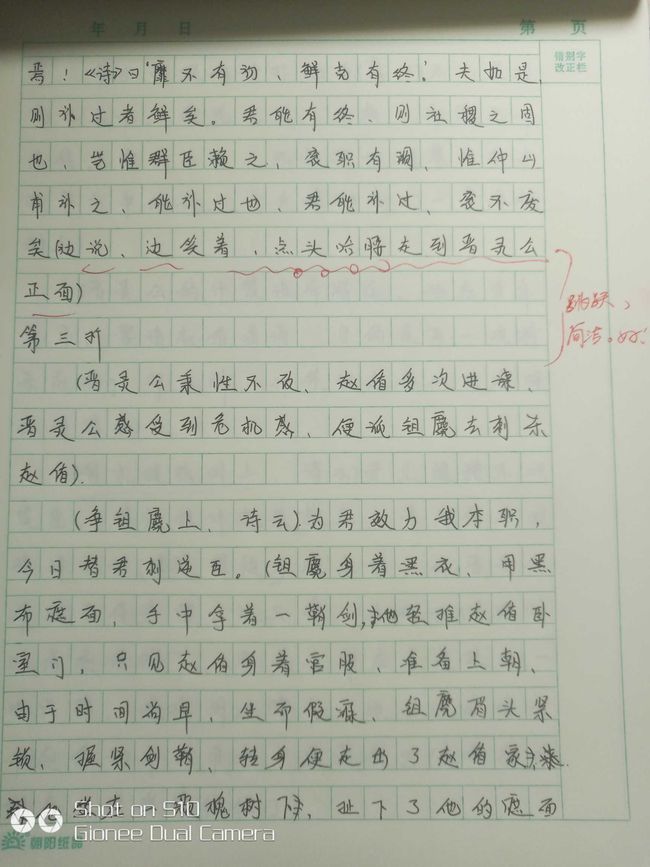 年 月 日 第 页
错别字
改正栏
晋！《诗》曰‘靡不有初、鲜克有终.’夫如是,
则补过者鲜矣。君能有终、则社稷之固
也、岂惟群臣赖之、衮职有阙、惟仲山
甫补之、能补过也、君能补过、衮不废
矣(边说、边笑着、点头哈腰走到晋灵公
正面)
跳跃、
简洁。好！
第三折
(晋灵公秉性不改、赵盾多次进谏、
晋灵公感受到危机感、便派鉏麑去刺杀
赵盾).
(净鉏麑上、诗云)为君效力我本职，
今日替君刺逆臣。(鉏麑身着黑衣、用黑
布遮面、手中拿着一鞘剑,他轻推赵盾卧
室门、只见赵盾身着官服、准备上朝、
由于时间尚早、坐而假寐、鉏麑眉头紧
锁、握紧剑鞘、转身便走出了赵盾家
一颗槐树下、扯下了他的遮面
Shot on S10
Gionee Dual Camera
朝阳纸品